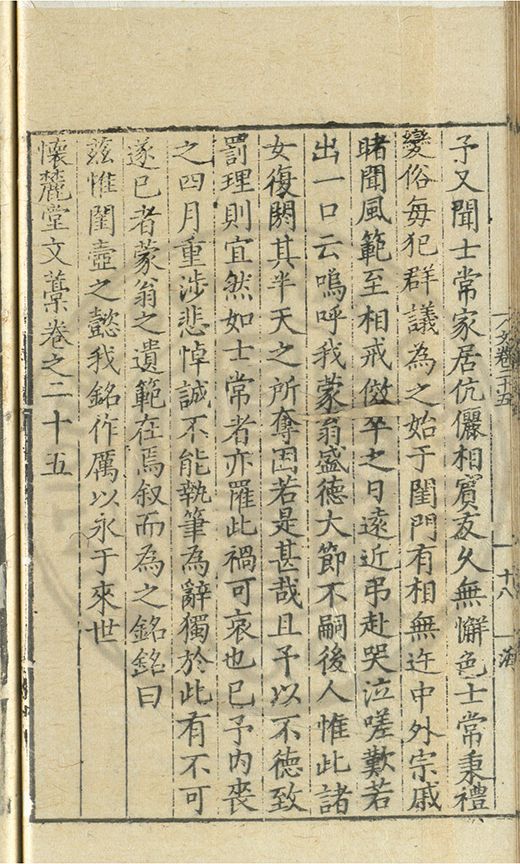 予又聞士常家居伉儷相賓友久無懈色士常秉禮
變俗每犯群議為之始于閨門有相無迕中外宗戚
睹聞風範至相戒傚卒之日遠近弔赴哭泣嗟歎若
出一口云嗚呼我蒙翁盛德大節不嗣後人惟此諸
女復閼其半天之所奪固若是甚哉且予以不德致
罰理則宜然如士常者亦罹此禍可哀也已予內喪
之四月重涉悲悼誠不能執筆為辭獨於此有不可
遂已者蒙翁之遺範在焉叙而為之銘銘曰
茲惟閨壼之懿我銘作厲以永于來世
懷麓堂文藁卷之二十五
文卷二十五
十八